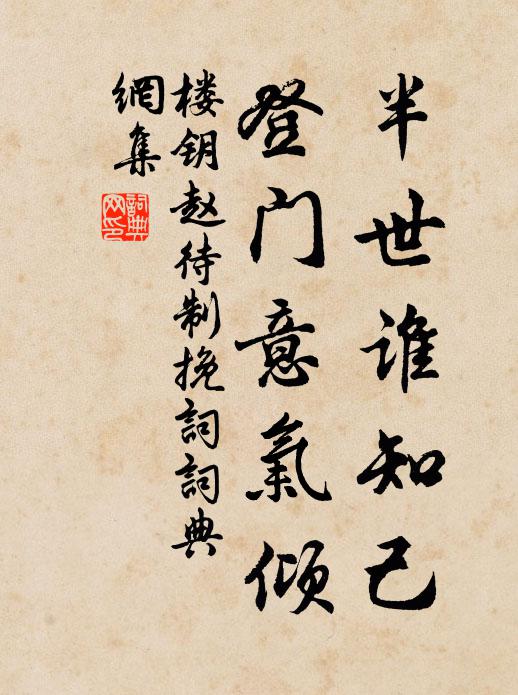 半世谁知己
登门意氣倾
楼钥赵待制挽詞詞典
網集
詞典
网印